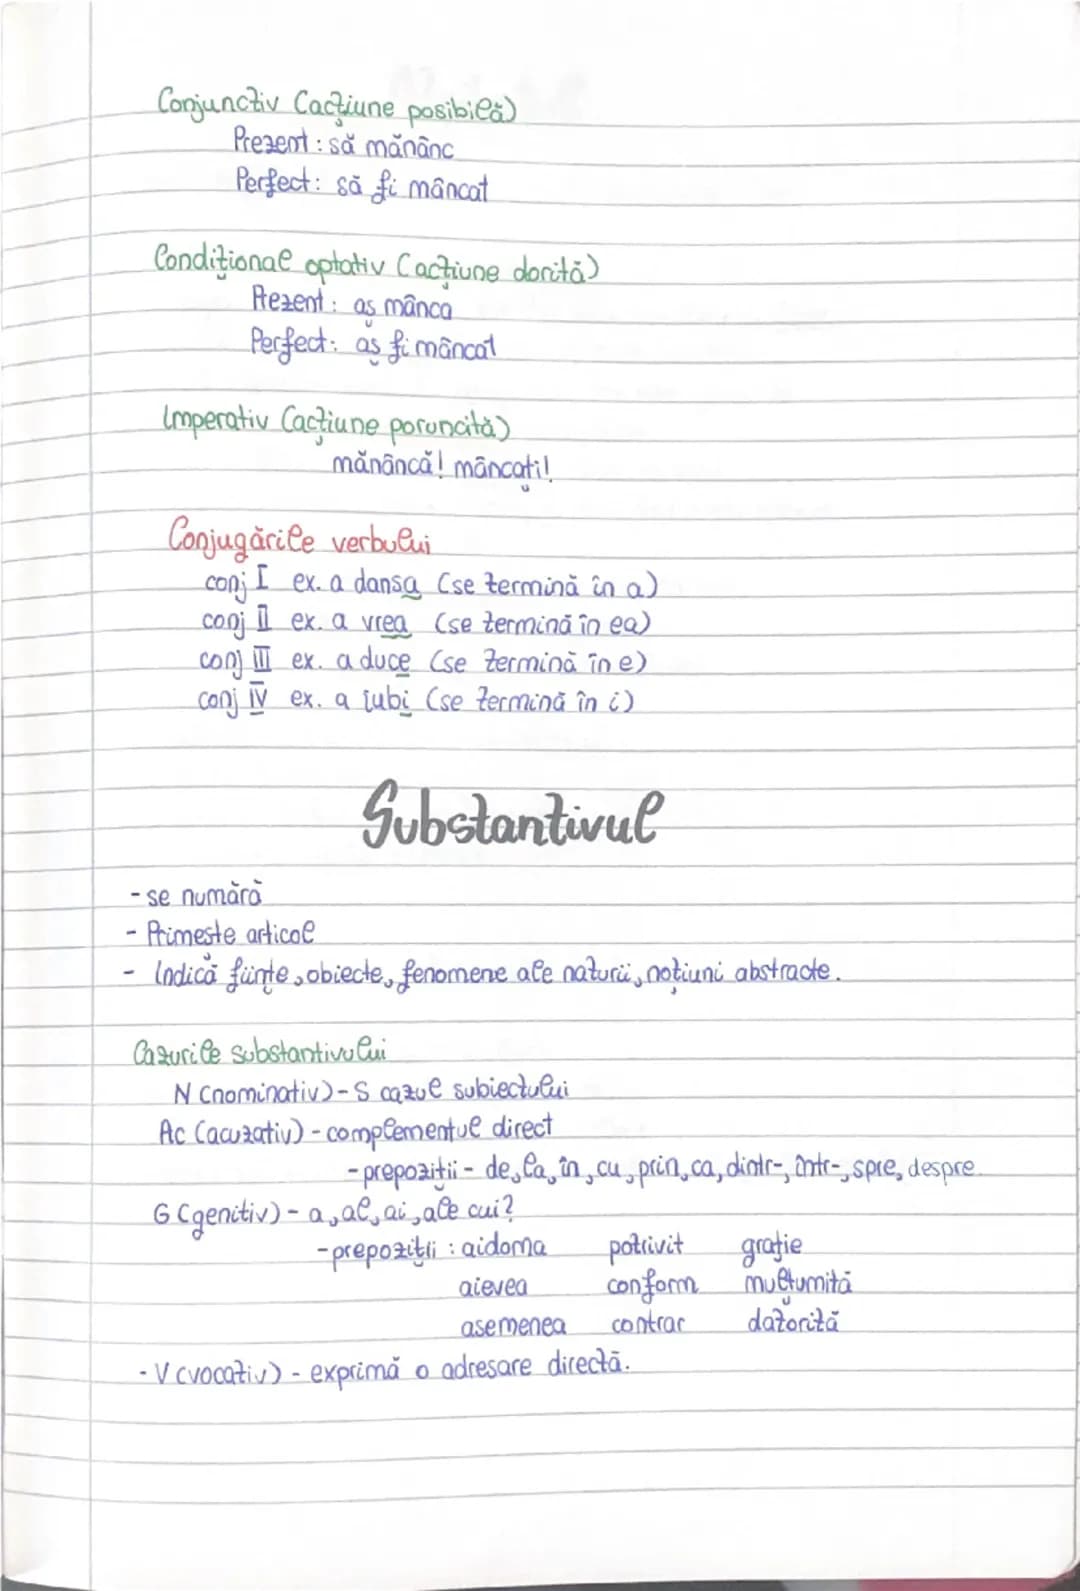 Conjunctiv (acțiune posibilă)
Prezent: să mănânc
Perfect: să fi mâncat
Condițional optativ (acțiune dorită)
Prezent: aș mânca
Perfect: aș fi mâncat
Imperativ (acțiune poruncită)
mănâncă! mâncați!
Conjugările verbului
conj I ex. a dansa (se termină în a)
conj II ex. a vrea (se termină în ea)
conj III ex. a duce (se termină în e)
conj IV ex. a iubi (se termină în i)
Substantivul
- se numără
- Primește articol
- Indică ființe, obiecte, fenomene ale naturii, noțiuni abstracte.
Cazurile substantivului
N (nominativ) - S cazul subiectului
Ac (acuzativ) - complementul direct
- prepoziții - de, la, în, cu, prin, ca, dintr-, într-, spre, despre.
G (genitiv) - a, al, ai, ale cui?
- prepoziții : aidoma potrivit grație
aievea conform mulțumită
asemenea contrar datorită
- V (vocativ) - exprimă o adresare directă.